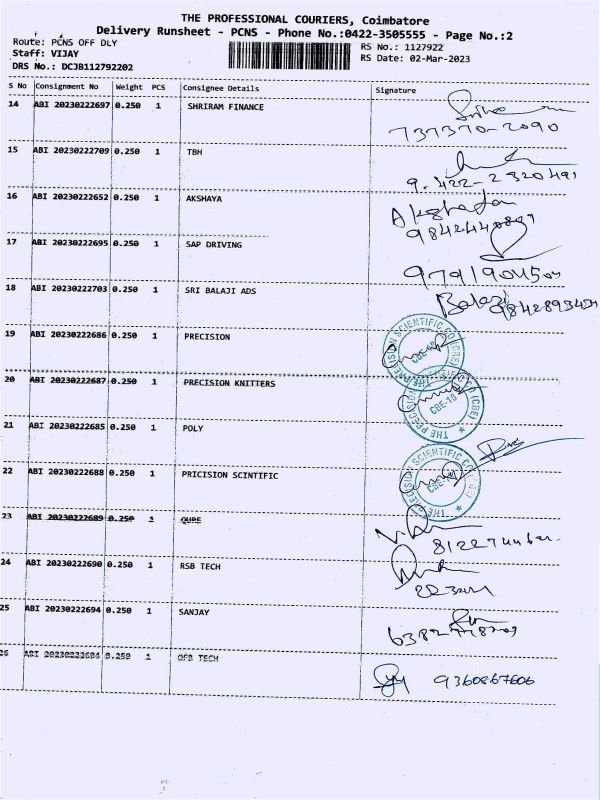 THE PROFESSIONAL COURIERS, Coimbatore
Delivery Runsheet - PCNS - Phone No.:0422-3505555 - Page No.:2
Route: PCNS OFF DLY
RS No.: 1127922
Staff: VIJAY
RS Date: 02-Mar-2023
DRS No.: DCJB112792202
S No Consignment No Weight PCS Consignee Details Signature
14 ABI 20230222697 0.250 1 SHRIRAM FINANCE
737370-2090
15 ABI 20230222709 0.250 1 TBH
9.422-2320491
16 ABI 20230222652 0.250 1 AKSHAYA
17 ABI 20230222695 0.250 1 SAP DRIVING
18 ABI 20230222703 0.250 1 SRI BALAJI ADS
Balaji
19 ABI 20230222686 0.250 1 PRECISION
THE PRECISION SCIENTIFIC CO (CBE)
CBE-18
20 ABI 20230222687 0.250 1 PRECISION KNITTERS
THE PRECISION SCIENTIFIC CO (CBE)
CBE-18
21 ABI 20230222685 0.250 1 POLY
22 ABI 20230222688 0.250 1 PRICISION SCINTIFIC
THE PRECISION SCIENTIFIC CO (CBE)
CBE-18
23 ABI 20230222689 0.250 1 QURE
24 ABI 20230222690 0.250 1 RSB TECH
25 ABI 20230222694 0.250 1 SANJAY
26 ABI 0.250 1 OFB TECH
9360867606